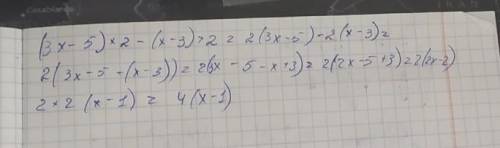 (3x-5)×2-(x-3)×2 = 2(3x-5)-2(x-3)=
2(3x-5-(x-3))=2(3x-5-x+3)=2(2x-5+3)=2(2x-2)
2×2(x-1) = 4(x-1)